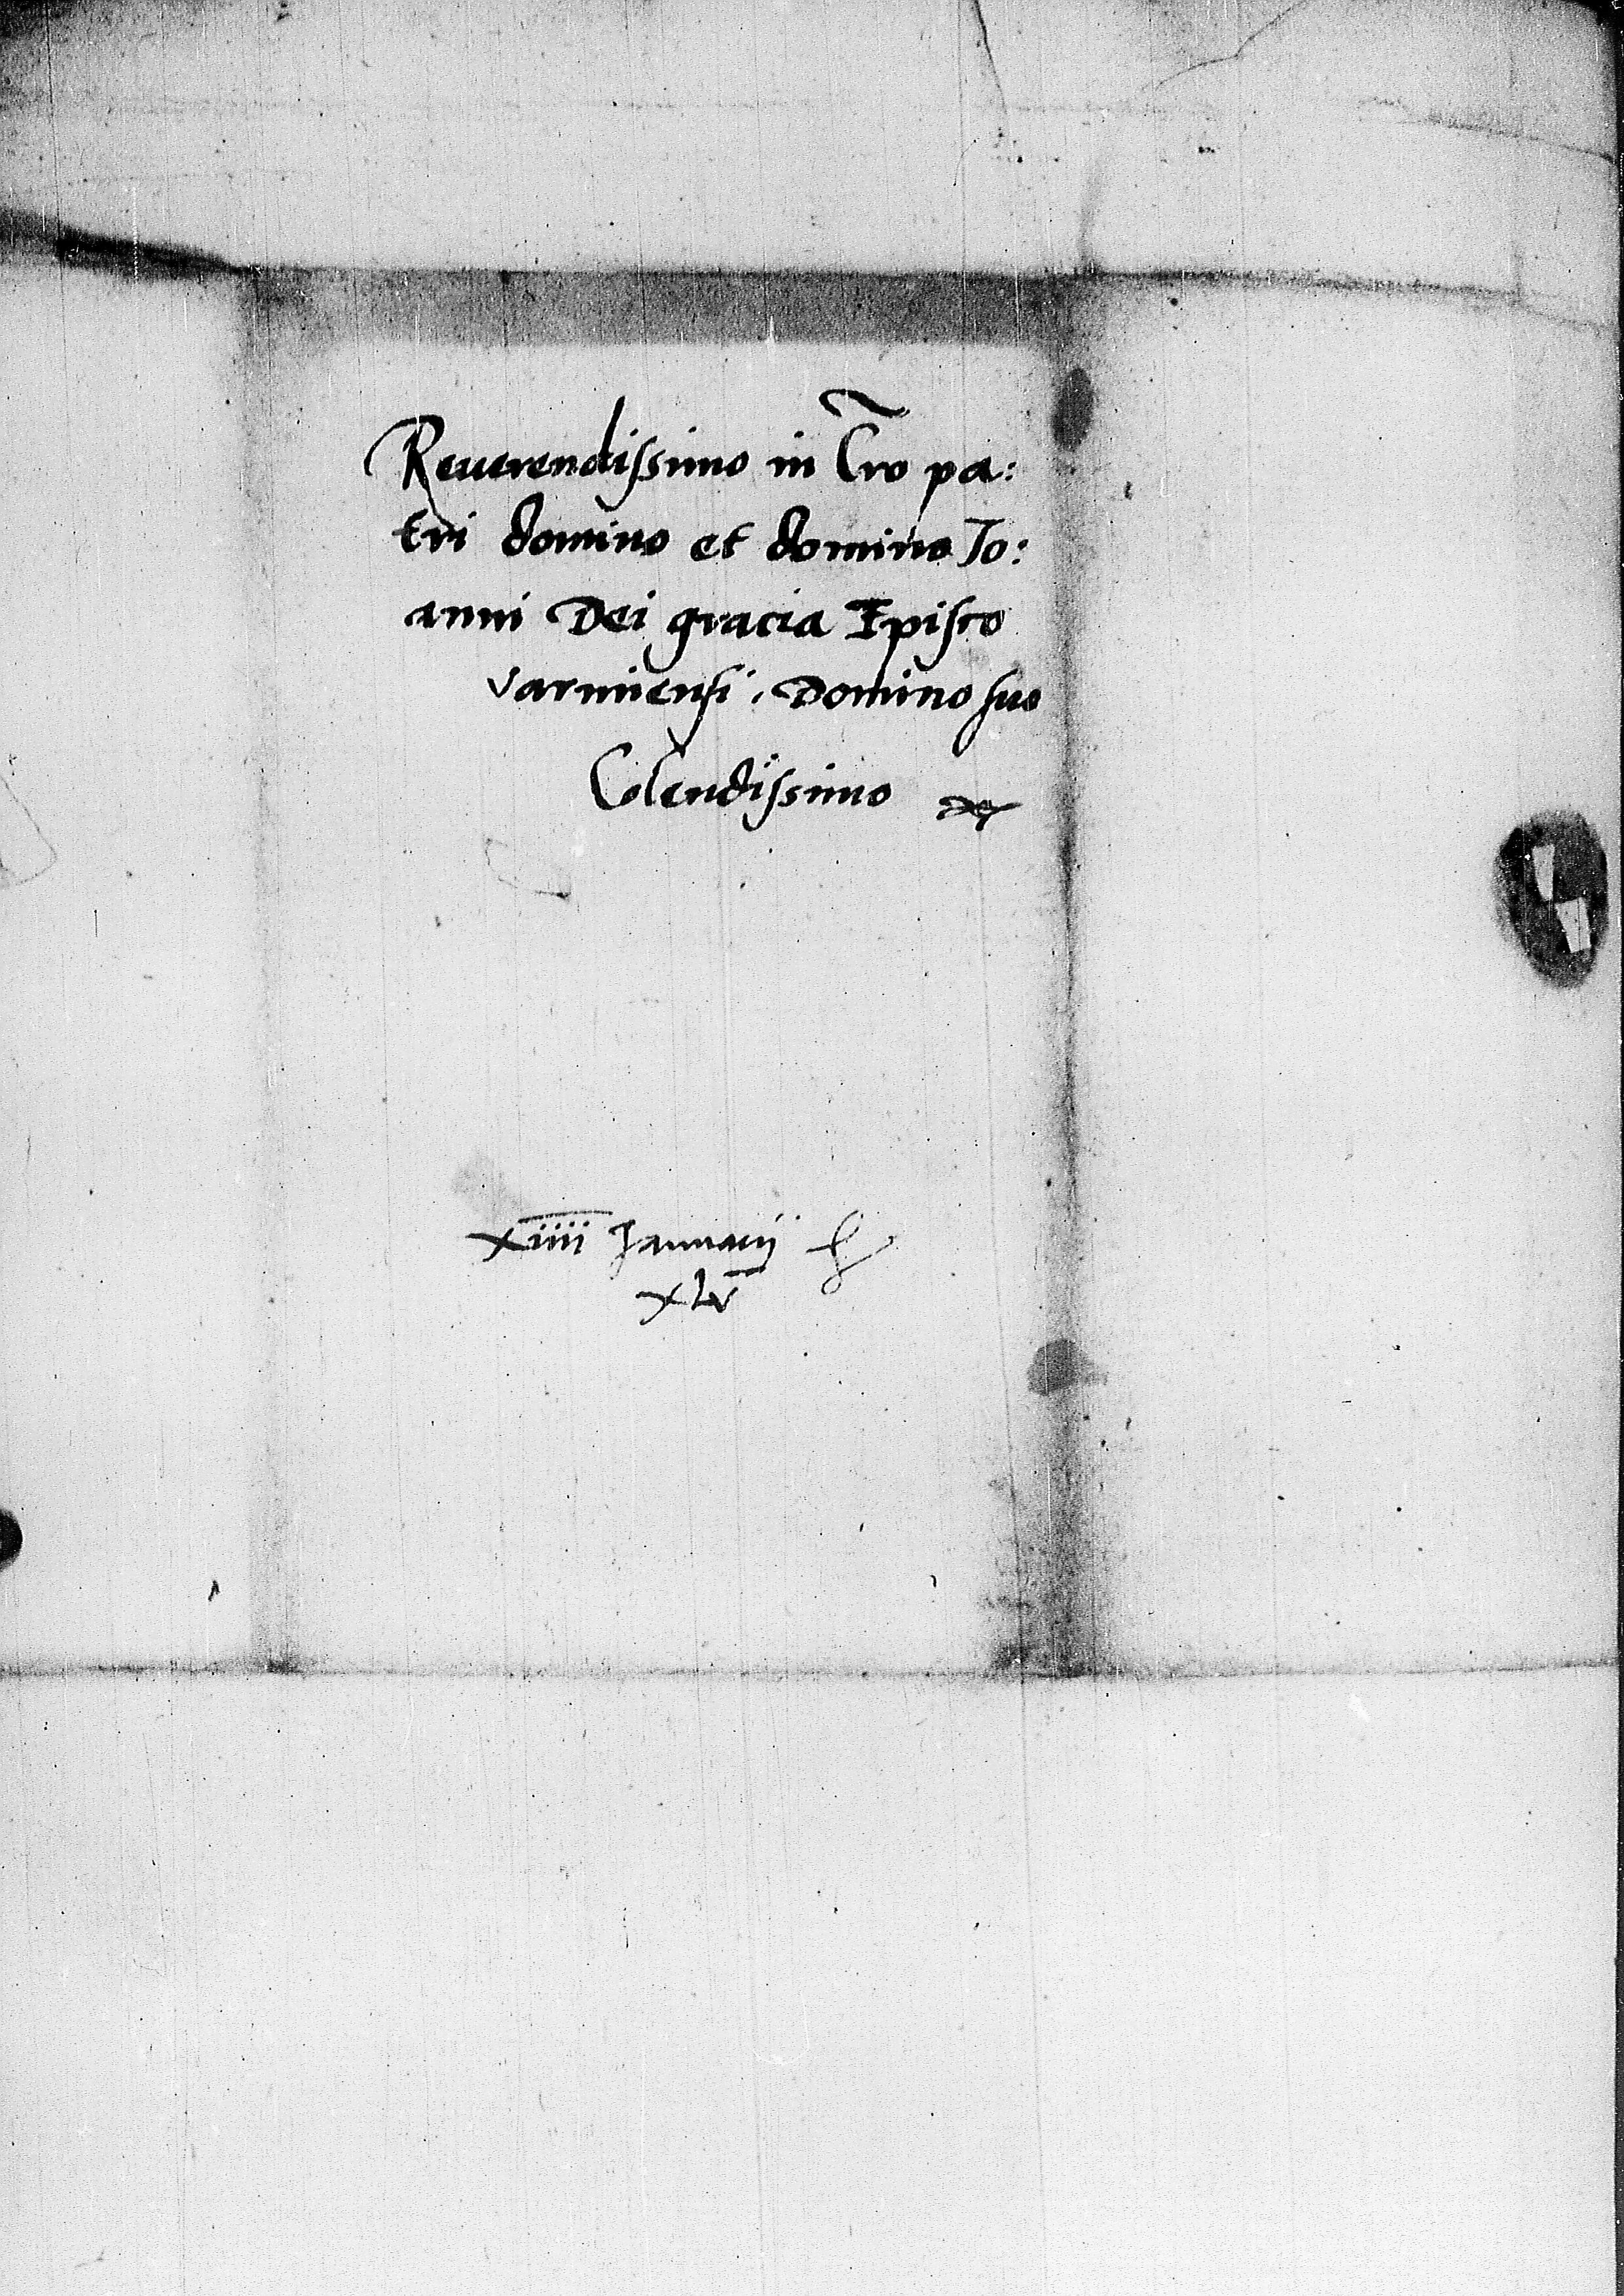 Reuerendissimo in Cro pa:
tri domino et domino Io:
anni Dei gracia Episco
varmiensi. Domino suo
Colendissimo
xiiii Januarij
xLv